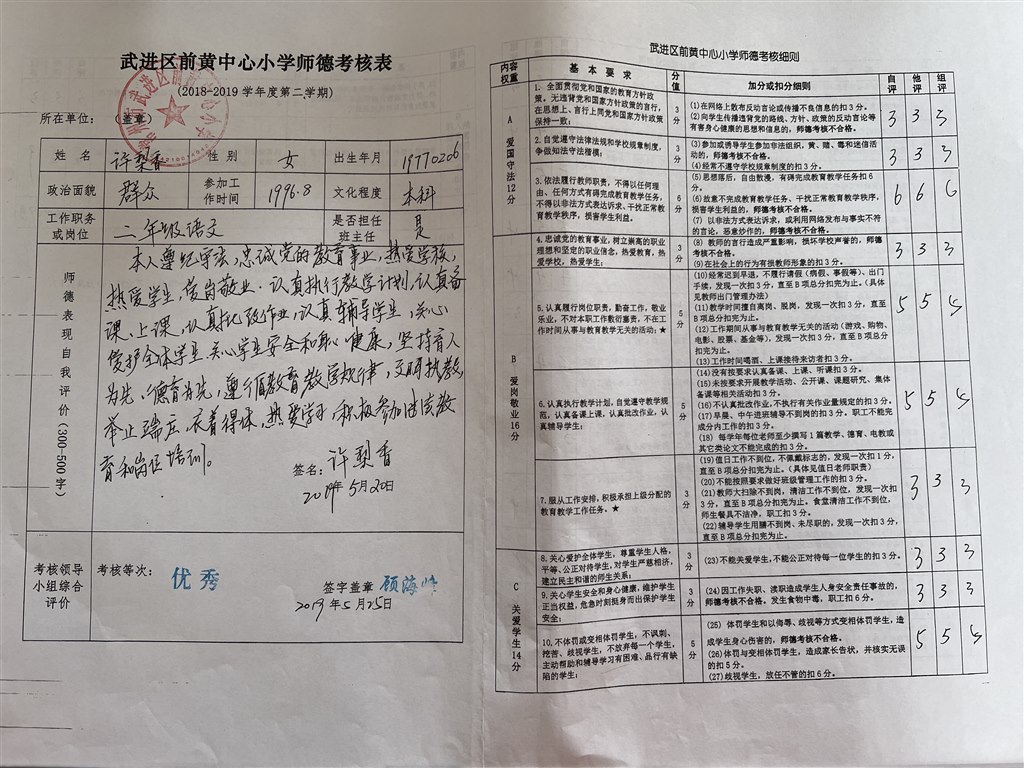 武进区前黄中心小学师德考核表
(2018-2019 学年度第二学期)
所在单位： (盖章)
姓 名 许梨香 性 别 女 出生年月 19770206
政治面貌 群众 参加工作时间 1996.8 文化程度 本科
工作职务或岗位 二年级语文 是否担任班主任 是
师德表现自我评价(300-500字)
本人遵纪守法,忠诚党的教育事业,热爱学校,
热爱学生,爱岗敬业.认真执行教学计划,认真备
课、上课,认真批改作业,认真辅导学生,关心
爱护全体学生.关心学生安全和身心健康,坚持育人
为先,德育为先,遵循教育教学规律,文明执教,
举止端庄,衣着得体,热爱学习,积极参加继续教
育和岗位培训。
签名：许梨香
2019年5月20日
考核领导小组综合评价
考核等次： 优秀
签字盖章 顾海
2019年5月25日
武进区前黄中心小学师德考核细则
内容权重 基 本 要 求 分值 加分或扣分细则 自评 他评 组评
A 爱国守法12分
1、全面贯彻党和国家的教育方针政
策。无违背党和国家方针政策的言行，
在思想上、言行上同党和国家方针政策
保持一致；
3分
(1)在网络上散布反动言论或传播不良信息的扣3分。
(2)向学生传播违背党的路线、方针、政策的反动言论等
有害身心健康的思想和信息的，师德考核不合格。
3 3 3
2、自觉遵守法律法规和学校规章制度，
争做知法守法楷模；
3分
(3)参加或诱导学生参加非法组织，黄、赌、毒和迷信活
动的，师德考核不合格。
(4)经常不遵守学校规章制度的扣3分。
3 3 3
3、依法履行教师职责，不得以任何理
由、任何方式有碍完成教育教学任务，
不得以非法方式表达诉求、干扰正常教
育教学秩序，损害学生利益。
6分
(5)思想落后，自由散漫，有碍完成教育教学任务扣6
分。
(6)故意不完成教育教学任务、干扰正常教育教学秩序，
损害学生利益的，师德考核不合格。
(7)以非法方式表达诉求，或利用网络发布与事实不符
的言论，恶意炒作的，师德考核不合格。
6 6 6
B 爱岗敬业16分
4、忠诚党的教育事业，树立崇高的职业
理想和坚定的职业信念，热爱教育，热
爱学校，热爱学生；
3分
(8) 教师的言行造成严重影响，损坏学校声誉的，师德
考核不合格。
(9)在社会上的行为有损教师形象的扣3分。
3 3 3
5、认真履行岗位职责，勤奋工作，敬业
乐业，不对本职工作敷衍塞责，不在工
作时间从事与教育教学无关的活动；★
5分
(10)经常迟到早退，不履行请假（病假、事假等）、出门
手续，发现一次扣3分，直至B项总分扣完为止。（具体
见教师出门管理办法）
(11)教学时间擅自离岗、脱岗，发现一次扣3分，直至
B项总分扣完为止。
(12)工作期间从事与教育教学无关的活动（游戏、购物、
电影、股票、基金等），发现一次扣3分，直至B项总分
扣完为止。
(13)工作时间喝酒、上课接待来访者扣3分。
5 5 5
6、认真执行教学计划，自觉遵守教学规
范，认真备课上课，认真批改作业，认
真辅导学生；
5分
(14)没有按要求认真备课、上课、听课扣3分。
(15)未按要求开展教学活动、公开课、课题研究、集体
备课等相关活动扣3分。
(16)不认真批改作业，不执行有关作业量规定的扣3分。
(17)早晨、中午进班辅导不到岗的扣3分。职工不能完
成分内工作的扣3分。
(18) 每学年每位老师至少撰写1篇教学、德育、电教或
其它类论文不能完成的扣3分。
5 5 5
7、服从工作安排，积极承担上级分配的
教育教学工作任务。★
3分
(19)值日工作不到位，不佩戴标志的，发现一次扣1分，
直至B项总分扣完为止。（具体见值日老师职责）
(20)不能按照要求做好班级管理工作的扣3分。
(21)教师大扫除不到岗，清洁工作不到位，发现一次扣
3分，直至B项总分扣完为止。食堂清洁工作不到位，
师生餐具不洁净，职工扣3分。
(22)辅导学生用膳不到岗、未尽职的，发现一次扣3分，
直至B项总分扣完为止。
3 3 3
C 关爱学生14分
8、关心爱护全体学生，尊重学生人格，
平等、公正对待学生，对学生严慈相济，
建立民主和谐的师生关系；
3分
(23)不能关爱学生，不能公正对待每一位学生的扣3分。
3 3 3
9、关心学生安全和身心健康，维护学生
正当权益，危急时刻挺身而出保护学生
安全；
3分
(24)因工作失职、渎职造成学生人身安全责任事故的，
师德考核不合格。发生食物中毒，职工扣6分。
3 3 3
10、不体罚或变相体罚学生，不讽刺、
挖苦、歧视学生，不放弃每一个学生，
主动帮助和辅导学习有困难、品行有缺
陷的学生；
5分
(25) 体罚学生和以侮辱、歧视等方式变相体罚学生，造
成学生身心伤害的，师德考核不合格。
(26)体罚与变相体罚学生，造成家长告状，并核实无误
的扣5分。
(27)歧视学生，放任不管的扣6分。
5 5 5